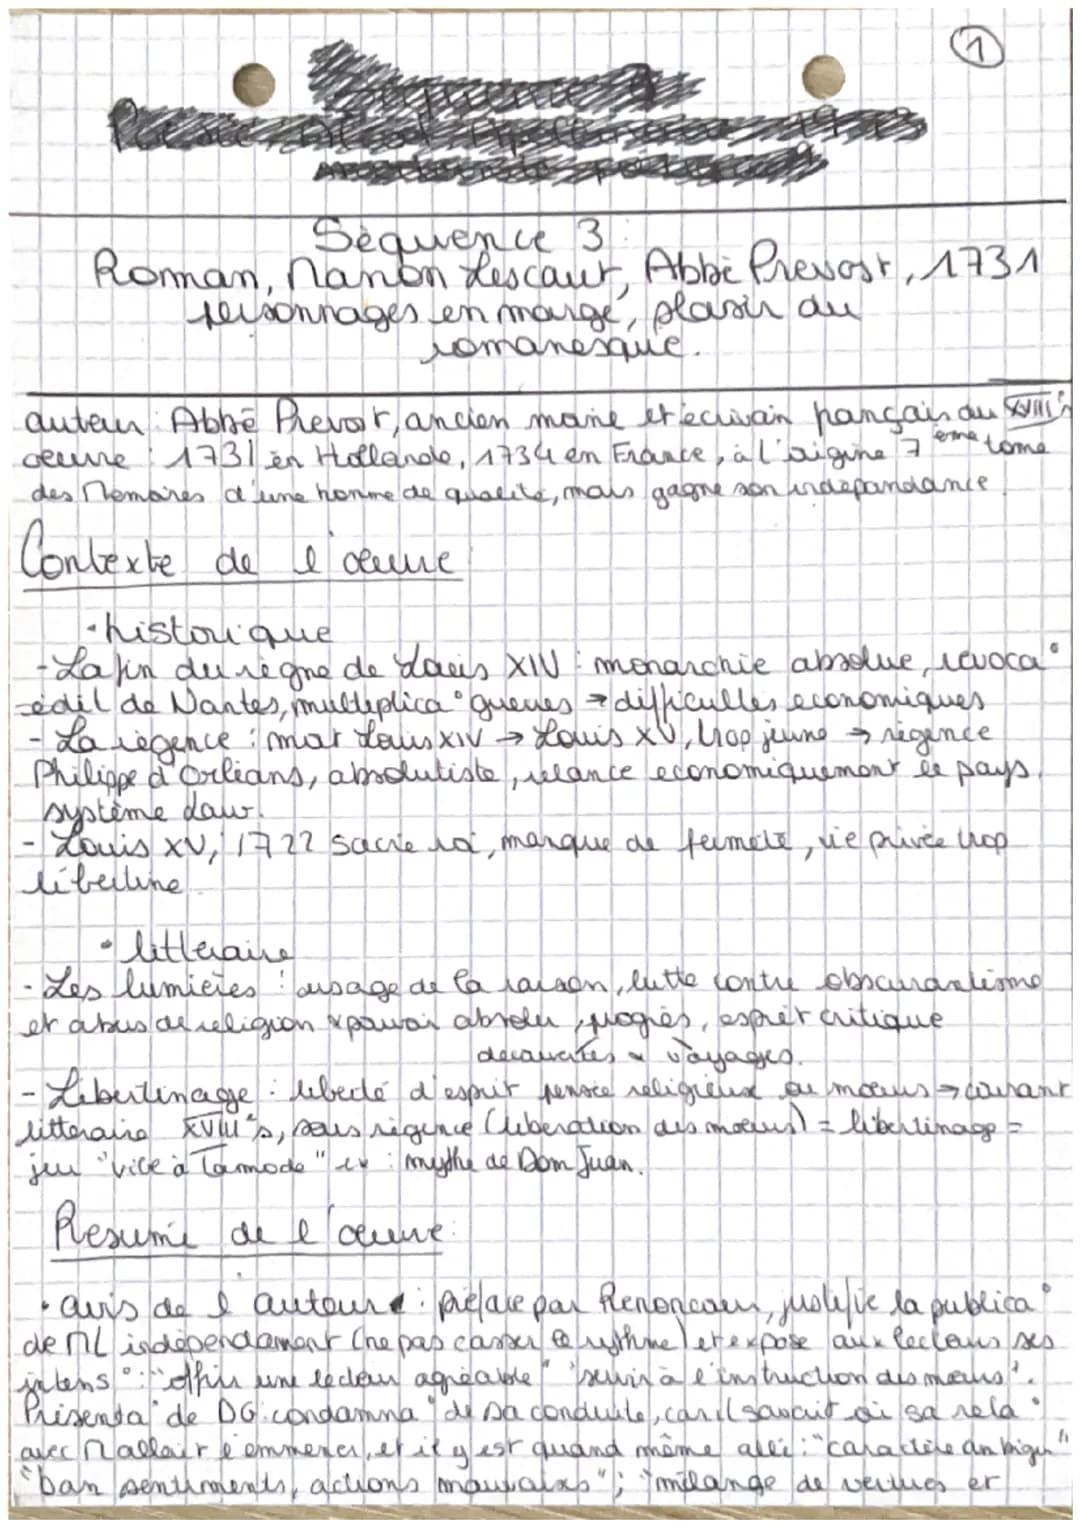 1
Séquence 3 :
Roman, Manon Lescaut, Abbé Prevost, 1731
personnages en marge, plasir du
romanesque.
auteur : Abbé Prevost, ancien moine et écrivain français du XVIII°s
oeuvre : 1731 en Hollande, 1734 en France, à l'origine 7 ème tome
des Memoires d'une homme de qualité, mais gagne son indépandance.
Contexte de l'oeuvre
• historique
- La fin du règne de Louis XIV : monarchie absolue, révoca°
édit de Nantes, multiplica° guerres → difficultés economiques
- La régence : mort Louis XIV → Louis XV, trop jeune → régence
Philippe d'Orléans, absolutiste, relance economiquement le pays.
système Law.
- Louis XV, 1722 sacré roi, manque de fermeté, vie privée trop
libertine.
• litteraire
- Les lumières : usage de la raison, lutte contre obscurantisme
et abus de religion x pouvoir absolu, progrès, esprit critique
découvertes x voyages.
- Libertinage : liberté d'esprit pensée religieux ou moeurs → courant
litteraire XVIII°s, sous régence (liberation des moeurs) = libertinage =
jeu "vice à la mode" ex : mythe de Dom Juan.
Resumé de l'oeuvre :
• avis de l'auteur : préface par Renoncour, justifie la publica°
de ML indépendament (ne pas casser le rythme) et expose aux lecteurs ses
intens° : "offrir une lecteur agréable" "servir à l'instruction des moeurs".
Présenta° de DG : condamna° de sa conduite, car il savait où sa rela°
avec M allait l'emmener, et il y est quand même allé : "caractère ambigu"
"bon sentiments, actions mauvaises" ; "mélange de vertues et